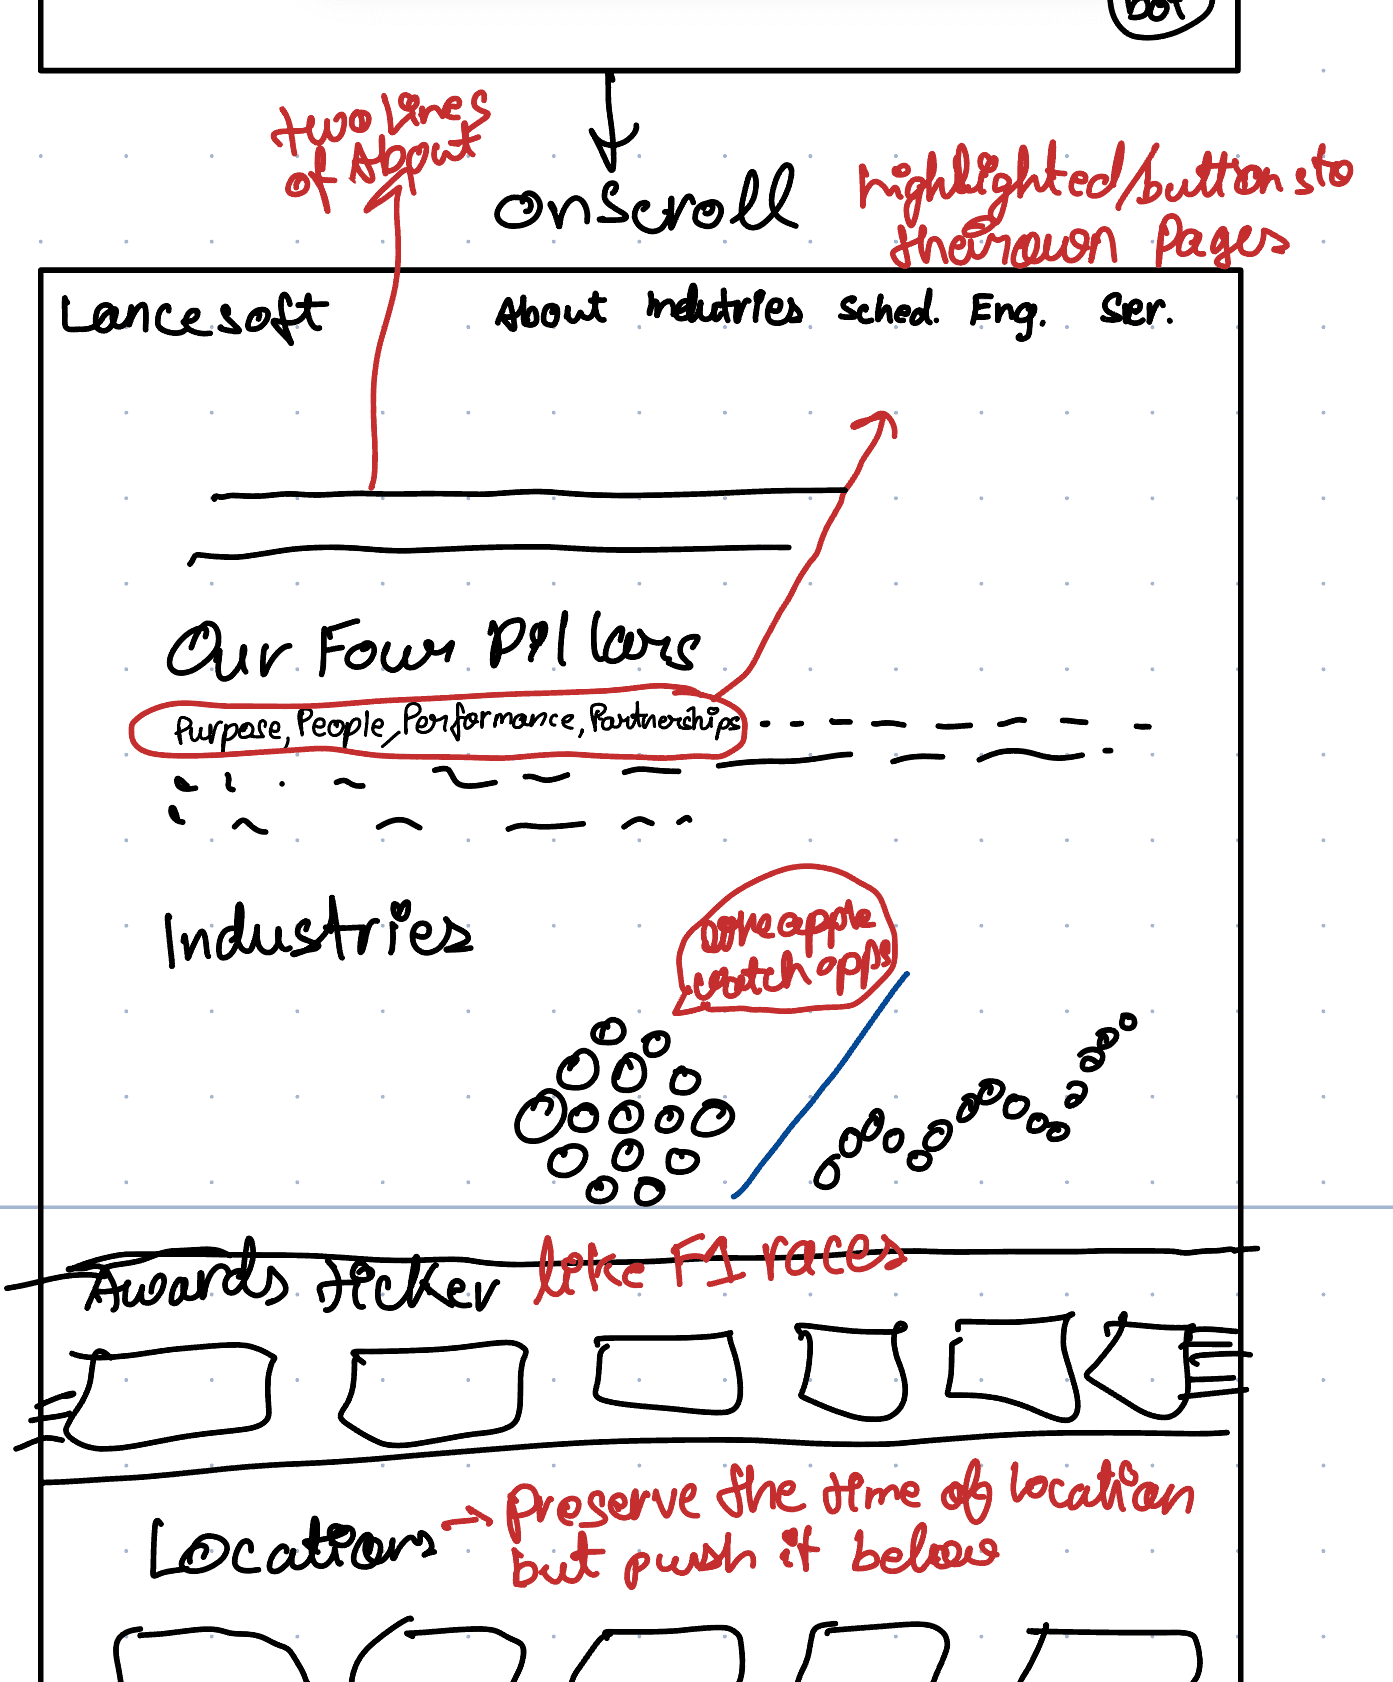 bot
two lines
of About
onscroll
highlighted/buttons to
their own pages
Lancesoft
About Indutries Sched. Eng. Ser.
Our Four Pillars
Purpose, People, Performance, Partnerships
Industries
apple
watch apps
Awards ticker like F1 races
Locations → Preserve the time of location
but push it below